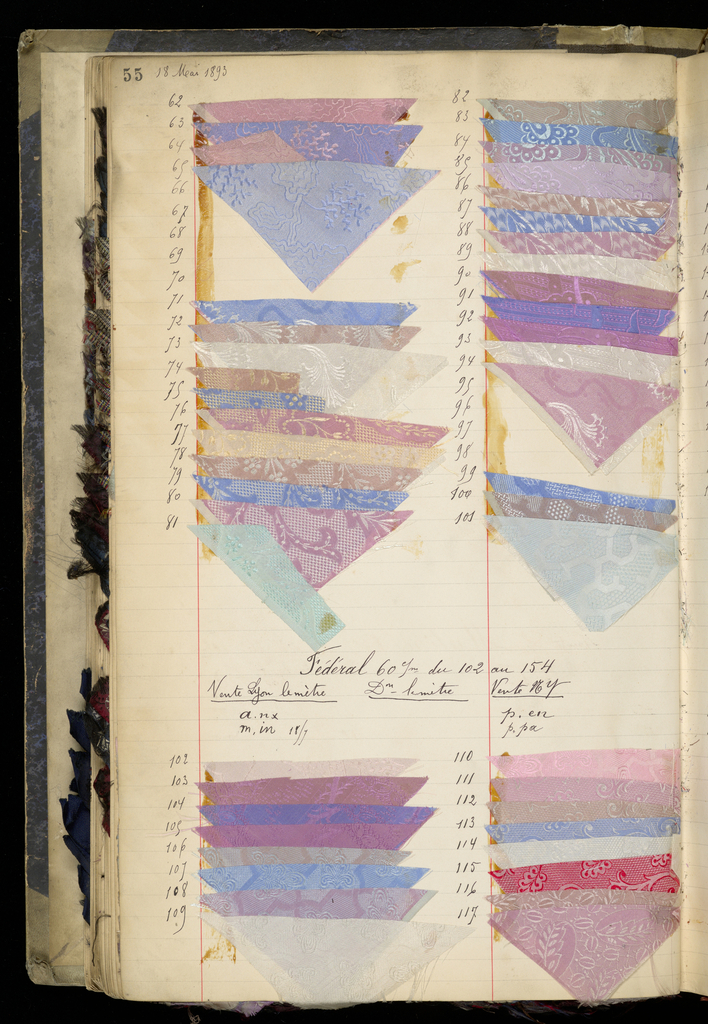 55 18 Mai 1893
62
63
64
65
66
67
68
69
70
71
72
73
74
75
76
77
78
79
80
81
82
83
84
85
86
87
88
89
90
91
92
93
94
95
96
97
98
99
100
101
Fédéral 60 c/m du 102 au 154
Vente Lyon le mètre Dm le mètre Vente NY
a.nx p.en
m.in 18/7 p.pa
102
103
104
105
106
107
108
109
110
111
112
113
114
115
116
117